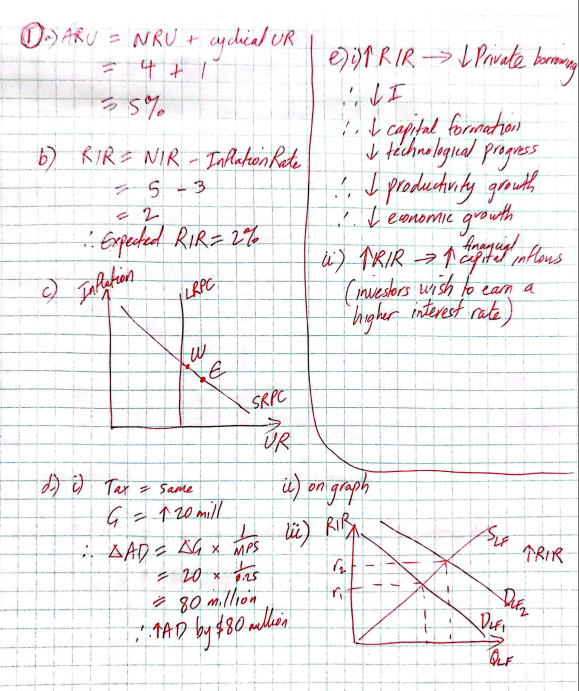 ① a) ARU = NRU + cyclical UR
= 4 + 1
= 5%
b) RIR = NIR - Inflation Rate
= 5 - 3
= 2
∴ Expected RIR = 2%
c) Inflation
LRPC
W
E
SRPC
UR
d) i) Tax = same
G = ↑20 mill
∴ ΔAD = ΔG × 1/MPS
= 20 × 1/0.25
= 80 million
∴ ↑AD by $80 million
ii) on graph
iii) RIR
S_LF
↑RIR
r₂
r₁
D_LF₂
D_LF₁
Q_LF
e) i) ↑RIR → ↓Private borrowing
∴ ↓I
∴ ↓ capital formation
↓ technological progress
∴ ↓ productivity growth
∴ ↓ economic growth
ii) ↑RIR → ↑ financial capital inflows
(investors wish to earn a
higher interest rate)